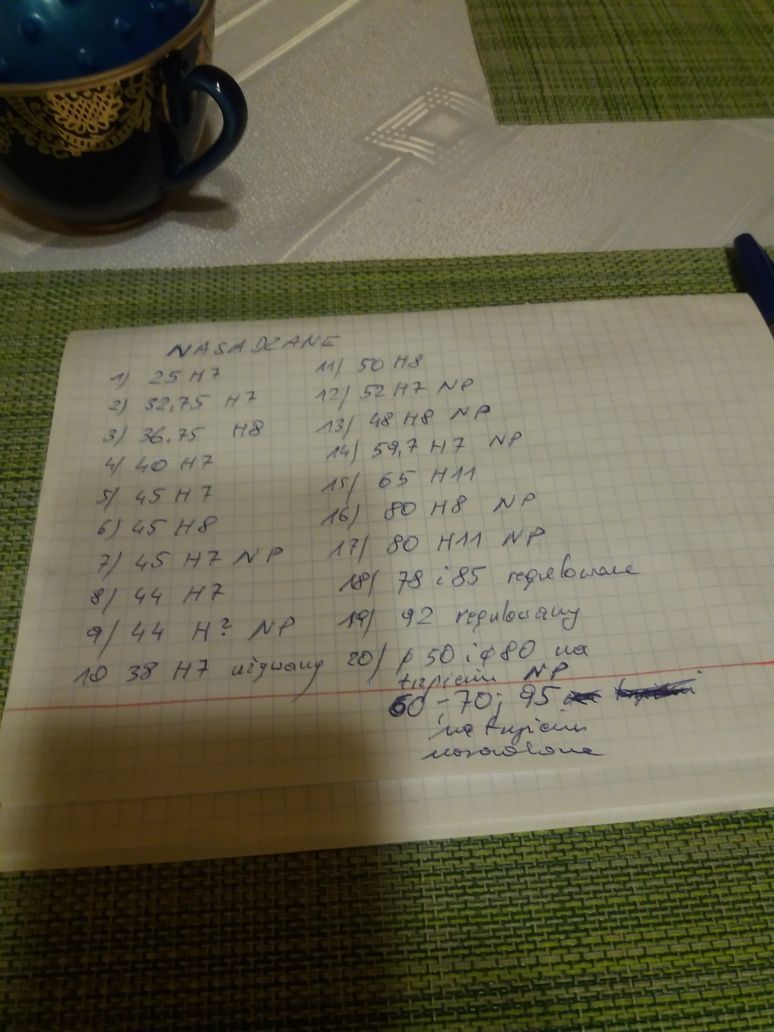 NASADZANE
1) 25 H7
2) 32,75 H7
3) 36.75 H8
4) 40 H7
5) 45 H7
6) 45 H8
7) 45 H7 NP
8) 44 H7
9) 44 H? NP
10 38 H7 używany
11) 50 H8
12) 52 H7 NP
13) 48 H8 NP
14) 59,7 H7 NP
15) 65 H11
16) 80 H8 NP
17) 80 H11 NP
18) 78 i 85 regulowane
19) 92 regulowany
20) φ 50 i φ 80 na
trzpieniu NP
60 - 70; 95
na trzpieniu